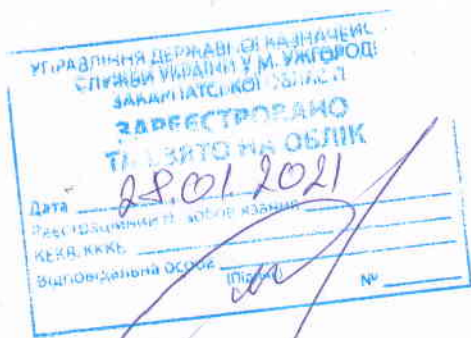 УПРАВЛІННЯ ДЕРЖАВНОЇ КАЗНАЧЕЙС
СЛУЖБИ УКРАЇНИ У М. УЖГОРОДІ
ЗАКАРПАТСЬКОЇ ОБЛАСТІ
ЗАРЕЄСТРОВАНО
ТА ВЗЯТО НА ОБЛІК
Дата 28.01.2021
Реєстраційний № зобов'язання
КЕКВ, ККК
Відповідальна особа
(Підпис) №